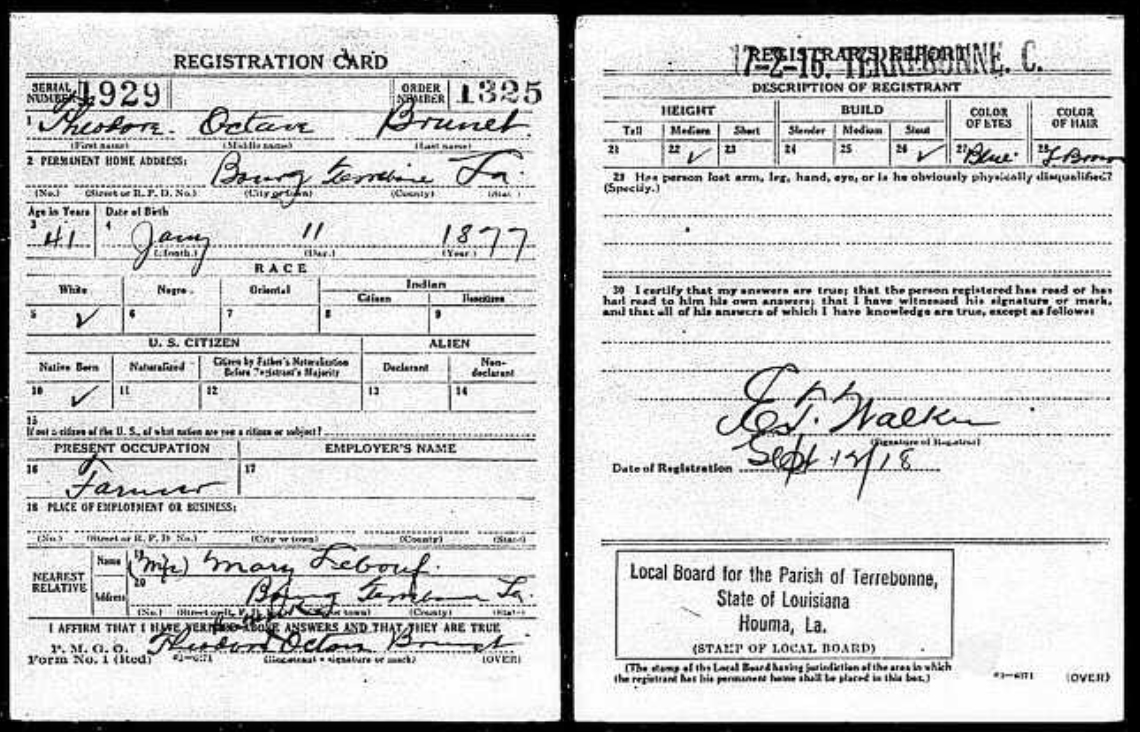 REGISTRATION CARD
SERIAL NUMBER 1929 ORDER NUMBER 1325
1 Theodore Octave Brunet
(First name) (Middle name) (Last name)
2 PERMANENT HOME ADDRESS:
Bourg Terrebonne La.
(No.) (Street or R. F. D. No.) (City or town) (County) (State)
Age in Years Date of Birth
3 41 4 Jany 11 1877
(Month.) (Day.) (Year.)
RACE
White Negro Oriental Indian
Citizen Noncitizen
5 ✓ 6 7 8 9
U. S. CITIZEN ALIEN
Native Born Naturalized Citizen by Father's Naturalization Before Registrant's Majority Declarant Non-declarant
10 ✓ 11 12 13 14
15
If not a citizen of the U. S., of what nation are you a citizen or subject?
PRESENT OCCUPATION EMPLOYER'S NAME
16 Farmer 17
18 PLACE OF EMPLOYMENT OR BUSINESS:
(No.) (Street or R. F. D. No.) (City or town) (County) (State)
NEAREST RELATIVE Name 19 Mary Lebouf
Address 20 Bourg Terrebonne La.
(No.) (Street or R. F. D. No.) (City or town) (County) (State)
I AFFIRM THAT I HAVE VERIFIED ABOVE ANSWERS AND THAT THEY ARE TRUE
P. M. G. O.
Form No. 1 (Red) Theodore Octave Brunet
(Registrant's signature or mark) (OVER)
REGISTRAR'S REPORT
17-2-16. TERREBONNE, C.
DESCRIPTION OF REGISTRANT
HEIGHT BUILD COLOR OF EYES COLOR OF HAIR
Tall Medium Short Slender Medium Stout
21 22 ✓ 23 24 25 26 ✓ 27 Blue 28 L Brown
29 Has person lost arm, leg, hand, eye, or is he obviously physically disqualified?
(Specify.)
30 I certify that my answers are true; that the person registered has read or has
had read to him his own answers; that I have witnessed his signature or mark,
and that all of his answers of which I have knowledge are true, except as follows:
Walker
(Signature of Registrar)
Date of Registration Sept 12/18
Local Board for the Parish of Terrebonne,
State of Louisiana
Houma, La.
(STAMP OF LOCAL BOARD)
(The stamp of the Local Board having jurisdiction of the area in which
the registrant has his permanent home shall be placed in this box.)
(OVER)